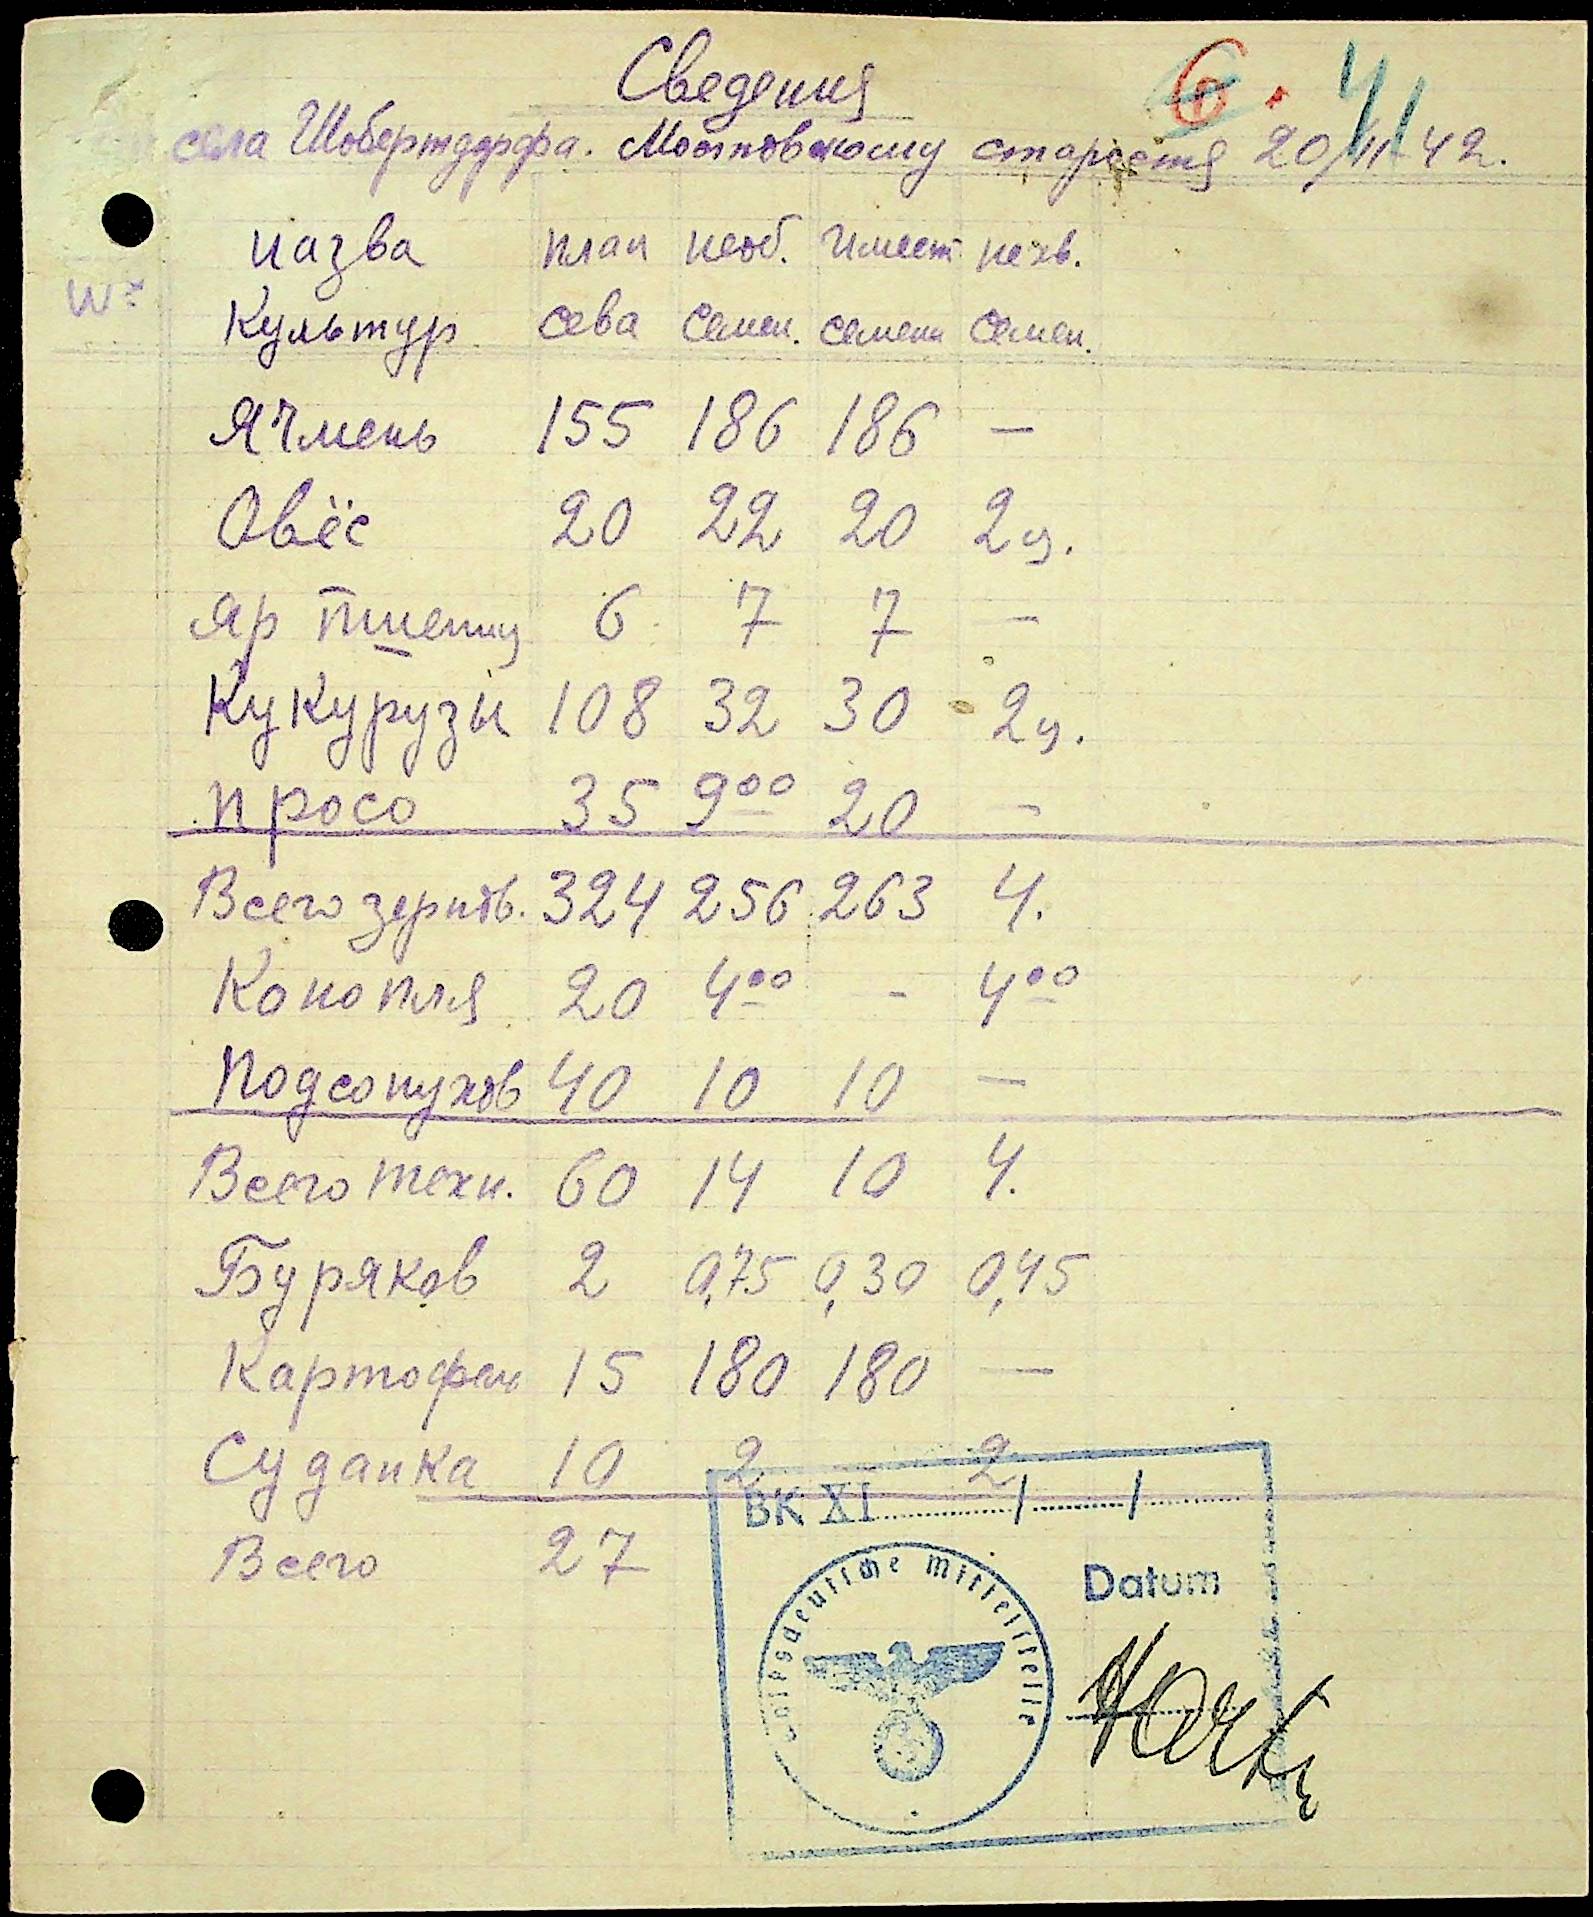 Сведения
6. 41
села Шобертдорфа. Мостовскому старостя 20/II-42.
назва план необ. Имеет нехв.
№
Культур сева Семен. семени Семен.
Ячмень 155 186 186 —
Овёс 20 22 20 2ц.
Яр пшениц 6 7 7 —
Кукурузы 108 32 30 2ц.
просо 35 9 00 20 —
Всего зернов. 324 256 263 4.
Конопля 20 4 00 - 4 00
Подсонухов 40 10 10 —
Всего техн. 60 14 10 4.
Буряков 2 0,75 0,30 0,45
Картофель 15 180 180 —
Суданка 10 2 2
BK XI / /
Всего 27
Volksdeutsche Mittelstelle
Datum